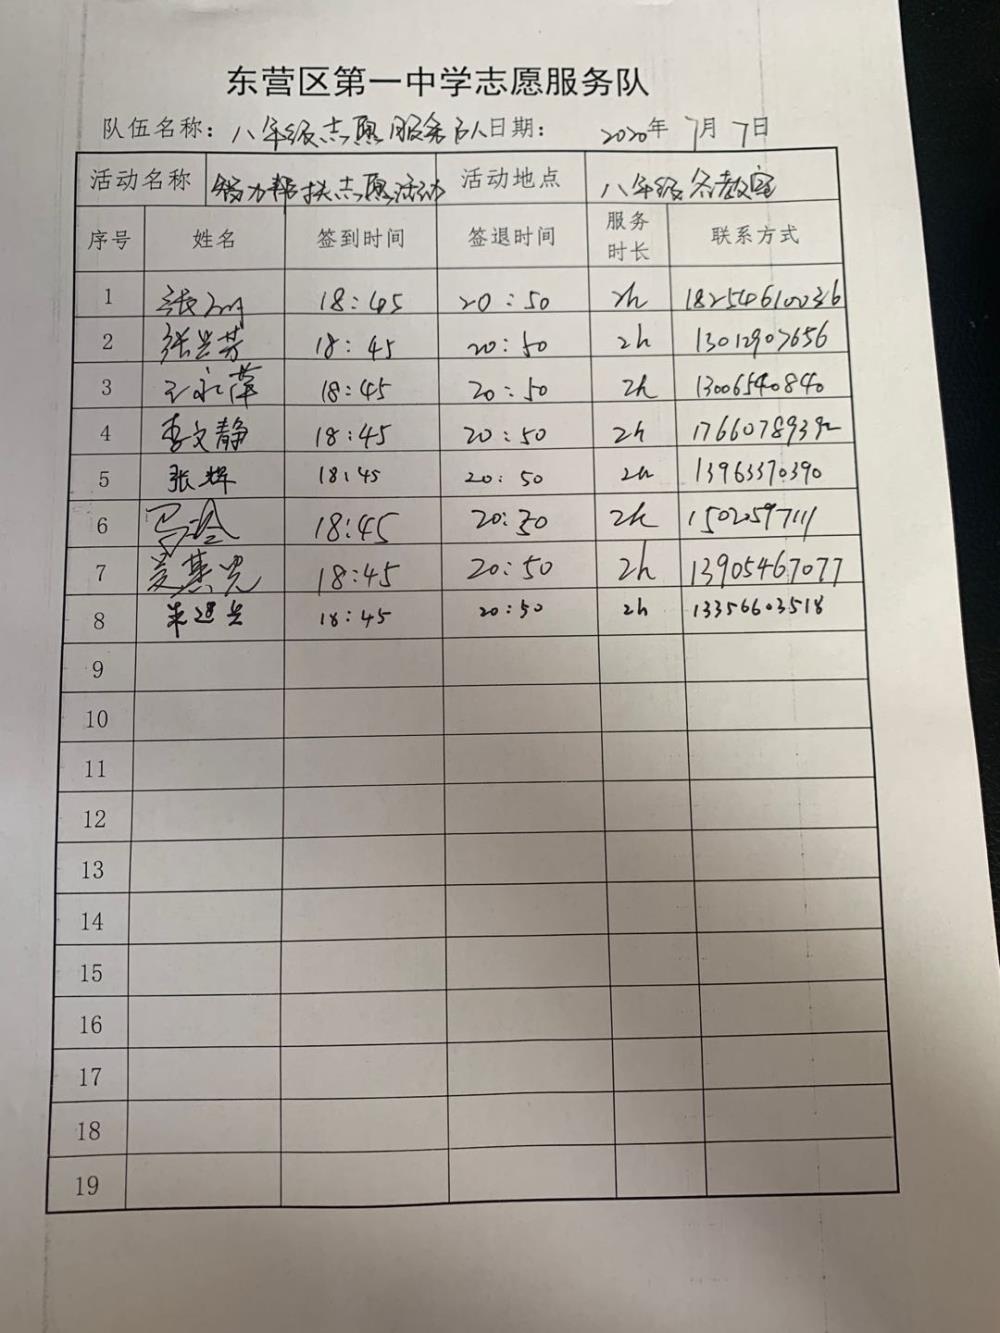 东营区第一中学志愿服务队
队伍名称：八年级志愿服务队 日期： 2020年 7月 7日
活动名称 帮扶志愿活动 活动地点 八年级各教室
序号 姓名 签到时间 签退时间 服务时长 联系方式
1 张 18:45 20:50 2h 18254610036
2 张兰芳 18:45 20:50 2h 13012907656
3 王永萍 18:45 20:50 2h 13006540840
4 李文静 18:45 20:50 2h
5 张辉 18:45 20:50 2h 13963370390
6 马玲 18:45 20:30 2h 15020597111
7 18:45 20:50 2h 13905467077
8 朱进兰 18:45 20:50 2h 13356603518
9
10
11
12
13
14
15
16
17
18
19